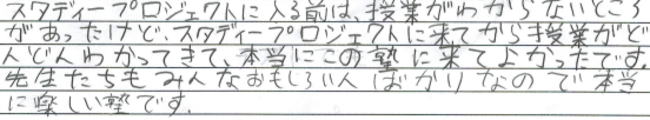 スタディープロジェクトに入る前は、授業がわからないところ
があったけど、スタディープロジェクトに来てから授業がど
んどんわかってきて、本当にこの塾に来てよかったです。
先生たちもみんなおもしろい人ばかりなので本当
に楽しい塾です。